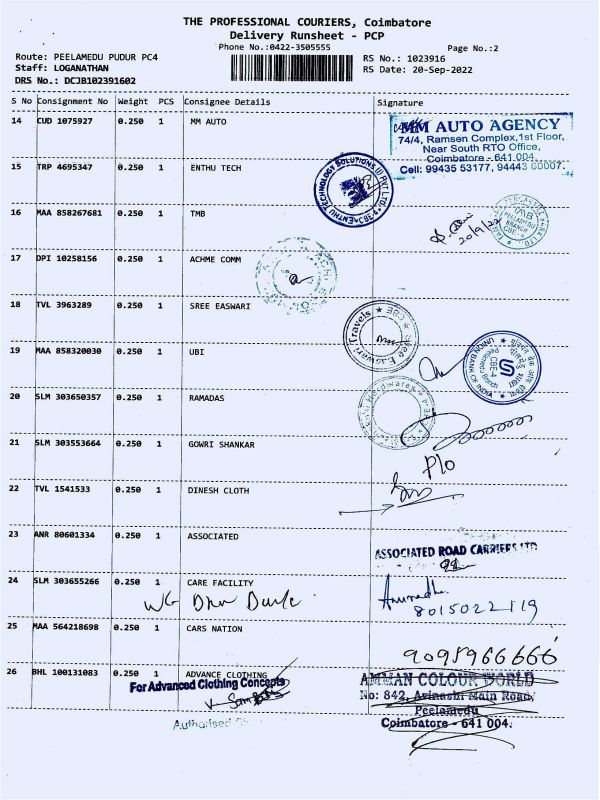 THE PROFESSIONAL COURIERS, Coimbatore
Delivery Runsheet - PCP
Phone No.:0422-3505555
Page No.:2
Route: PEELAMEDU PUDUR PC4
RS No.: 1023916
Staff: LOGANATHAN
RS Date: 20-Sep-2022
DRS No.: DCJB102391602
S No Consignment No Weight PCS Consignee Details Signature
14 CUD 1075927 0.250 1 MM AUTO
MM AUTO AGENCY
74/4, Ramsen Complex,1st Floor,
Near South RTO Office,
Coimbatore - 641 004.
Cell: 99435 53177, 94443 60007.
15 TRP 4695347 0.250 1 ENTHU TECH
ENTHU TECHNOLOGY SOLUTIONS (I) PVT LTD. CBE-4
16 MAA 858267681 0.250 1 TMB
20/9/22
TMB
PEELAMEDU
BRANCH
CBE-4
17 DPI 10258156 0.250 1 ACHME COMM
18 TVL 3963289 0.250 1 SREE EASWARI
Sree Easwari Travels CBE
19 MAA 858320030 0.250 1 UBI
UNION BANK OF INDIA
CBE-4
Peelamedu Branch
20 SLM 303650357 0.250 1 RAMADAS
21 SLM 303553664 0.250 1 GOWRI SHANKAR
P/o
22 TVL 1541533 0.250 1 DINESH CLOTH
23 ANR 80601334 0.250 1 ASSOCIATED
ASSOCIATED ROAD CARRIERS LTD
24 SLM 303655266 0.250 1 CARE FACILITY
Anuradh
8015022119
25 MAA 564218698 0.250 1 CARS NATION
9095966666
26 BHL 100131083 0.250 1 ADVANCE CLOTHING
For Advanced Clothing Concepts
Authorised
AMMAN COLOUR WORLD
No: 842, Avinashi Main Road,
Peelamedu
Coimbatore - 641 004.